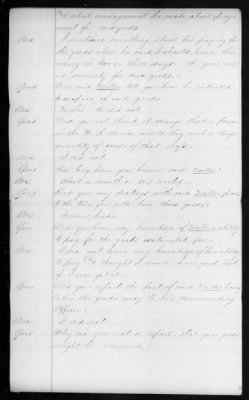 what arrangement he made about pay-
ment for said goods.
Ans I understood something about his paying for
the goods when he said he should have the
money in two or three days. He gave me
no security for said goods.
Ques Did said Miller tell you how he intended
to dispose of said goods.
Ans No Sir. He did not.
Ques Did you not think it strange that a person
in the U. S. service would buy such a large
quantity of goods of that class.
Ans I did not.
Ques How long have you known said Miller.
Ans About a month or six weeks.
Ques Had you any dealings with said Miller prior
to the time you sold him these goods?
Ans Never had.
Ques Did you have any knowledge of Miller's ability
to pay for the goods contracted for?
Ans I did not have any knowledge of his ability
to pay. I thought I would have good luck
if I ever got it.
Ques Did you report the fact of said Miller having
taken the goods away to his Commanding
Officer?
Ans I did not.
Ques Why did you not so report, that your goods
might be recovered?